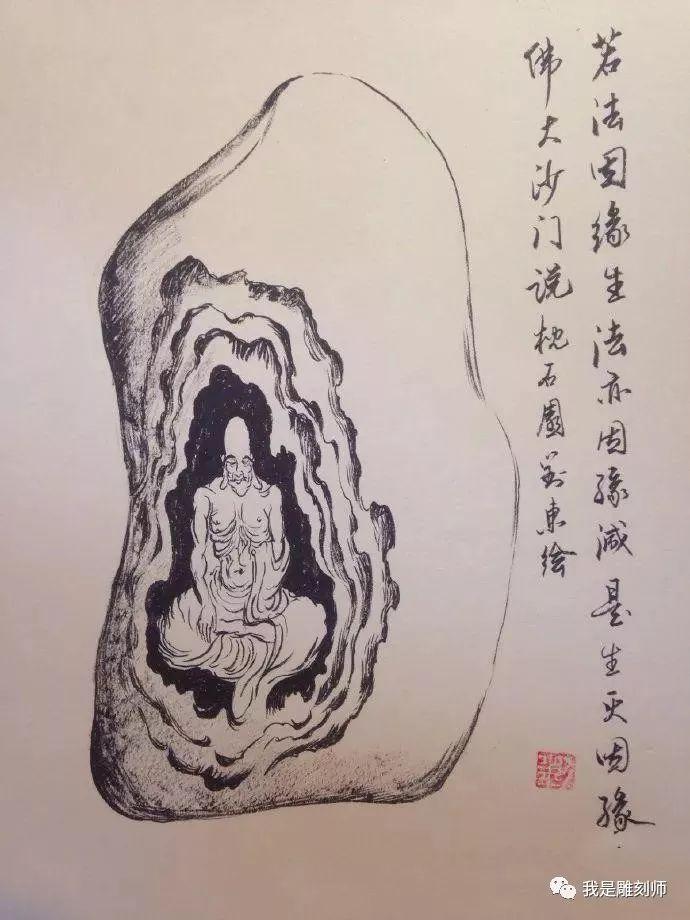 若法因缘生法亦因缘减是生灭因缘
佛大沙门说枕石園劉東绘
我是雕刻师